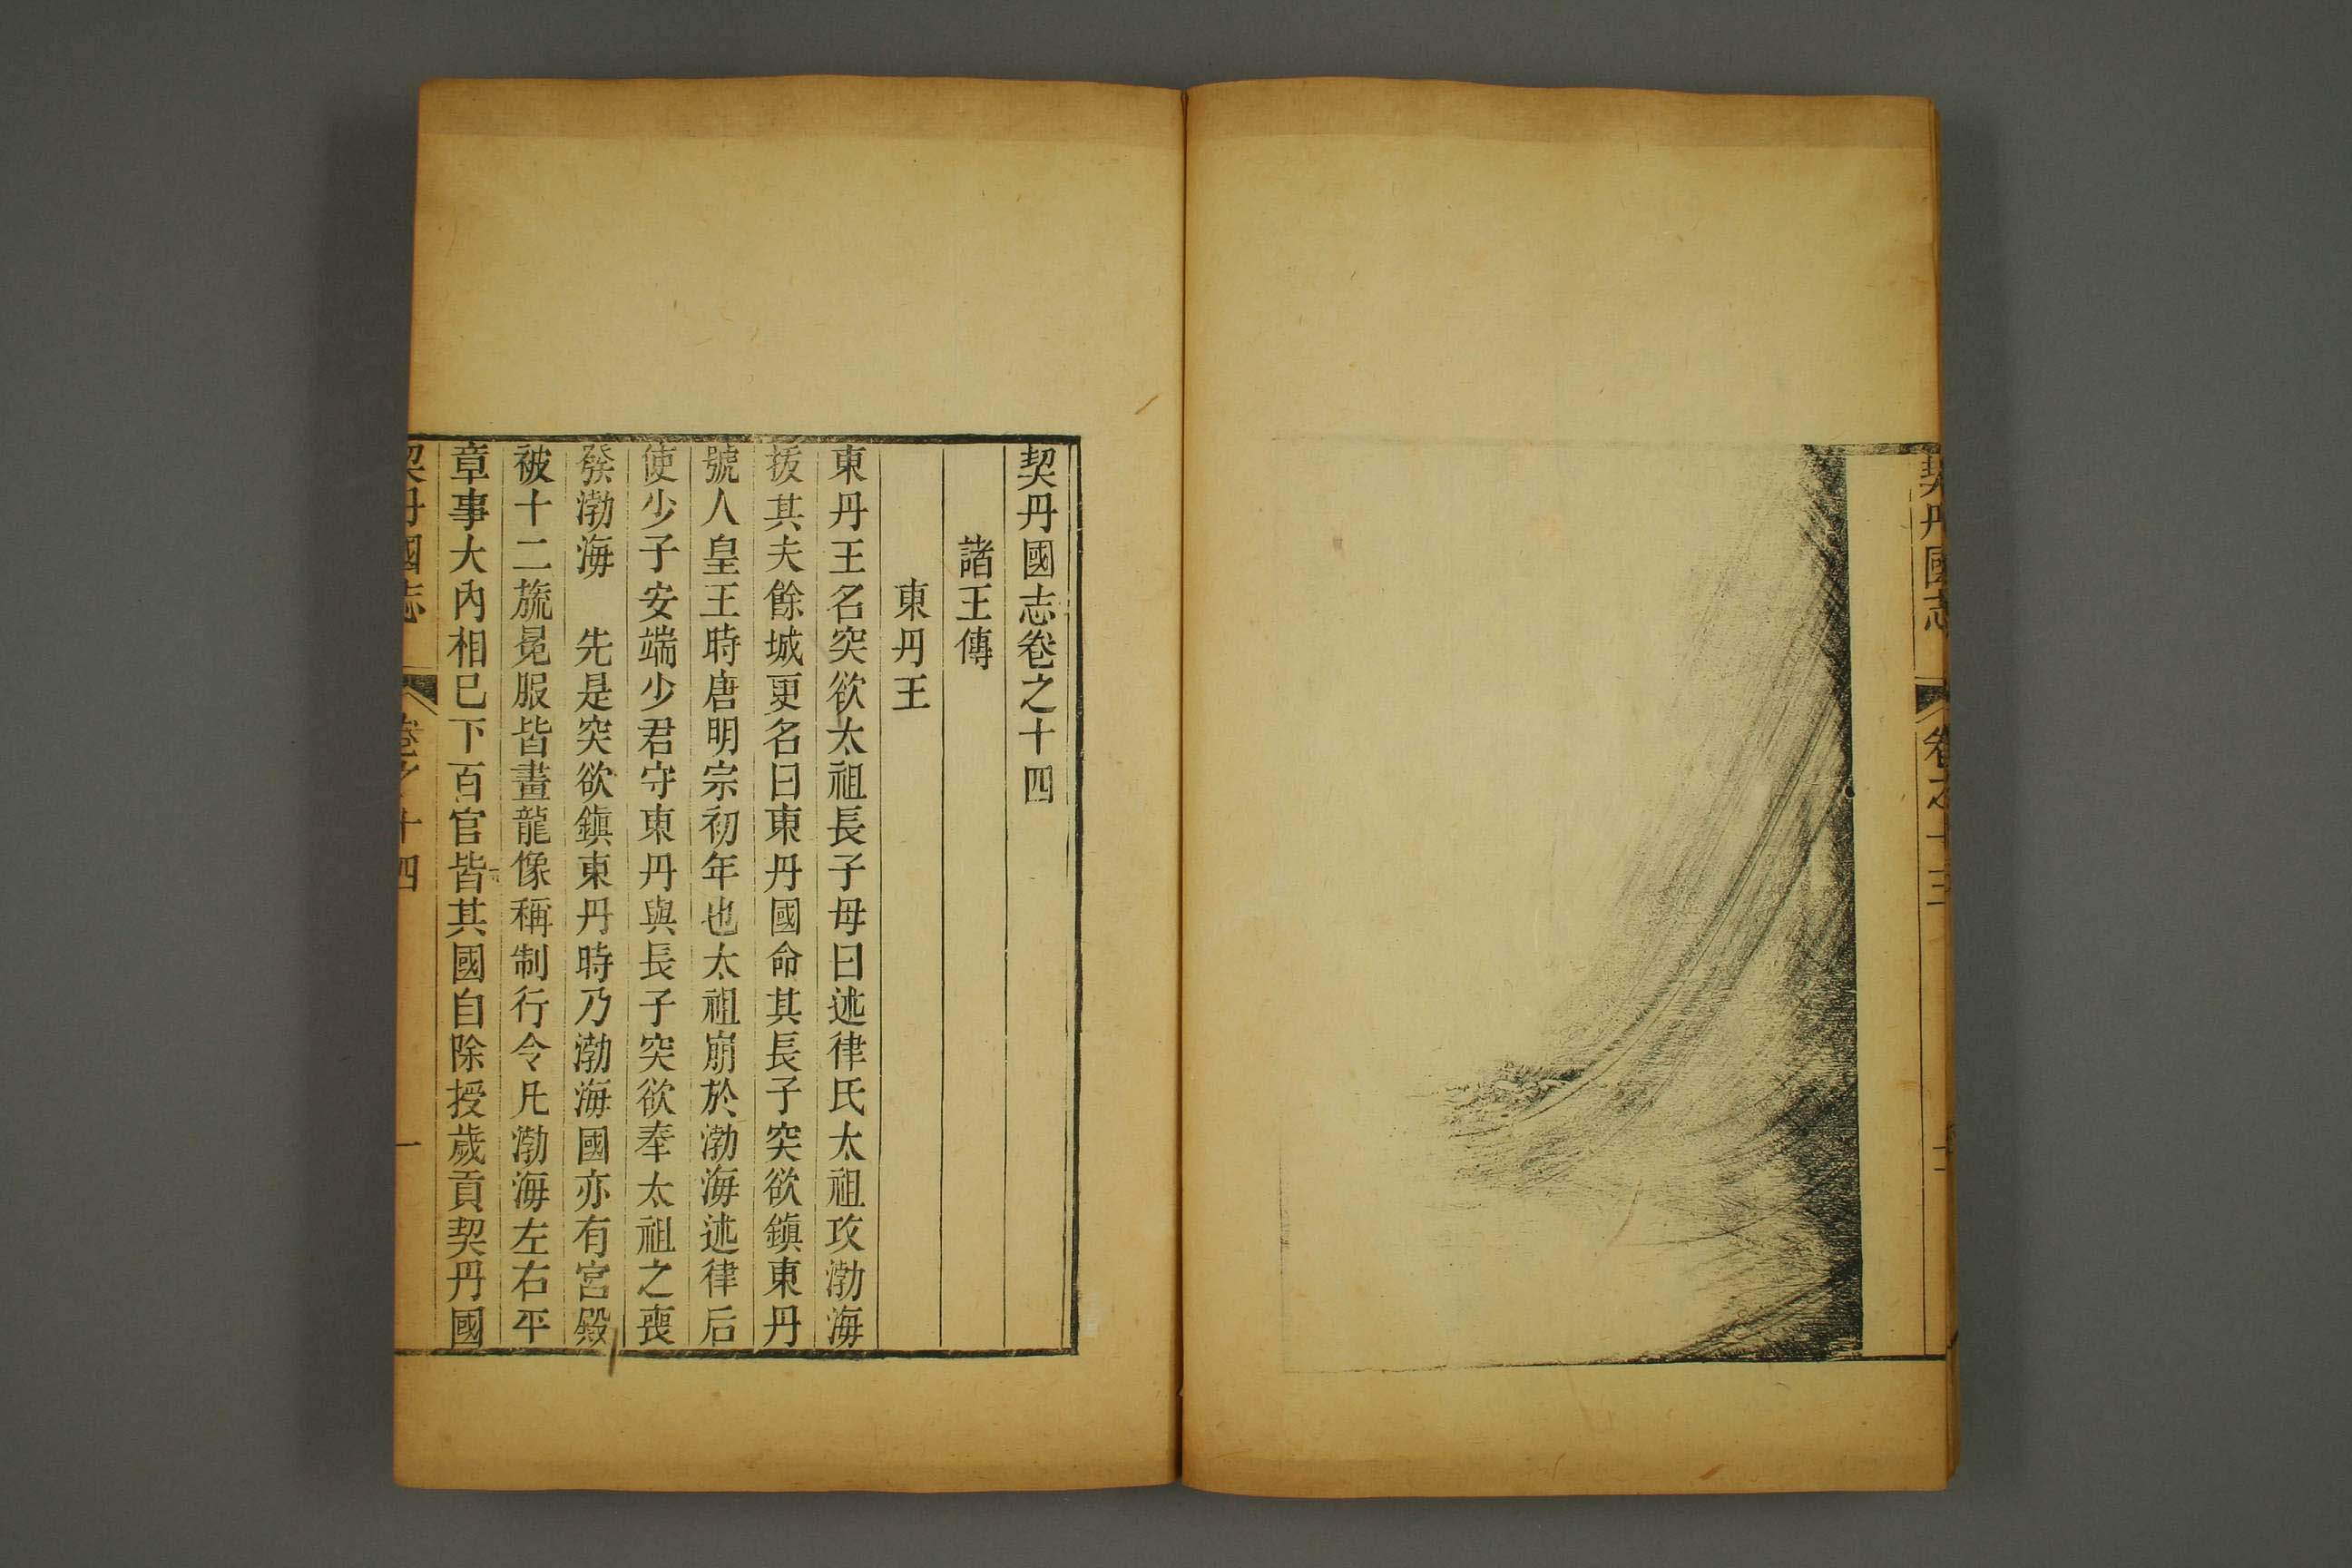 契丹國志
卷之十三
契丹國志卷之十四
諸王傳
東丹王
東丹王名突欲太祖長子母曰述律氏太祖攻渤海
拔其夫餘城更名曰東丹國命其長子突欲鎮東丹
號人皇王時唐明宗初年也太祖崩於渤海述律后
使少子安端少君守東丹與長子突欲奉太祖之喪
發渤海 先是突欲鎮東丹時乃渤海國亦有宮殿
被十二旒冕服皆畫龍像稱制行令凡渤海左右平
章事大內相已下百官皆其國自除授歲貢契丹國
契丹國志
卷之十四
一